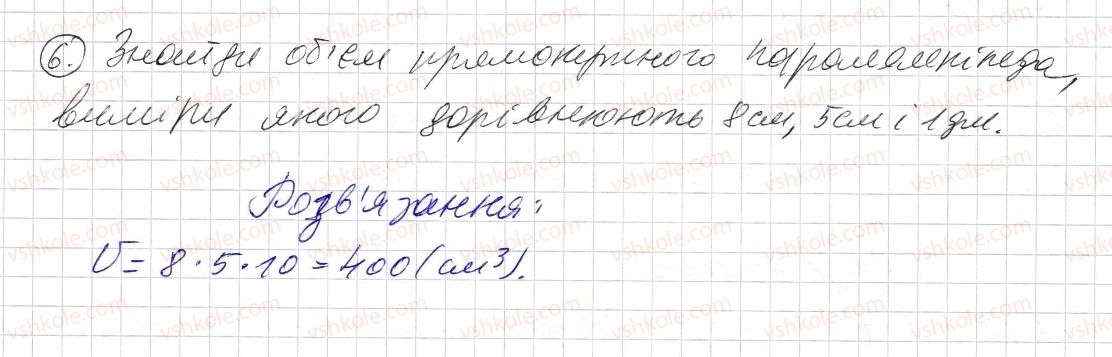 6. Знайди об'єм прямокутного паралелепіпеда,
виміри якого дорівнюють 8см, 5см і 1дм.
Розв'язання:
V = 8 · 5 · 10 = 400 (см³).